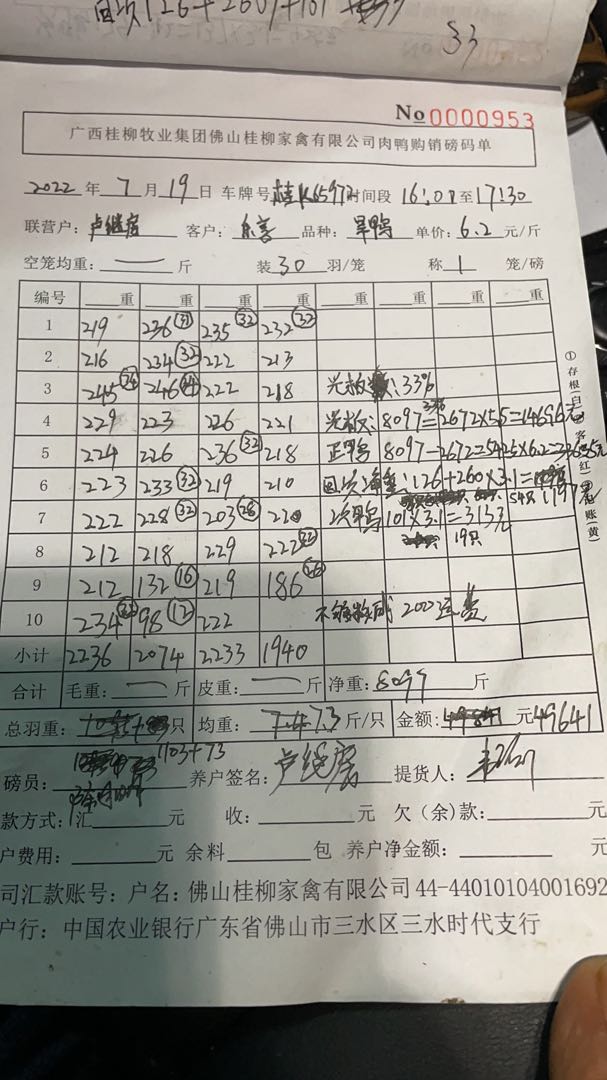 回次126+260)+101
33
No 0000953
广西桂柳牧业集团佛山桂柳家禽有限公司肉鸭购销磅码单
2022年7月19日 车牌号桂K65972时间段16:01至17:30
联营户:卢继房 客户: 品种:旱鸭 单价:6.2元/斤
空笼均重:一斤 装30羽/笼 称1笼/磅
编号 重 重 重 重 重 重 重
1 219 236(31) 235(32) 232(32)
2 216 234(32) 222 213
3 245(34) 246(34) 222 218 光板:33%
4 229 223 226 221 光板:8097=2672×5.5=14696元
5 224 226 236(32) 218 正鸭 8097-2672=5425×6.2=33635元
6 223 233(32) 219 210 回次海重:126+260×3.1=
7 222 228(32) 203(28) 220 次鸭101×3.1=313元 54只1197元
19只
8 212 218 229 222(32)
9 212 132(16) 219 186(26)
10 234(32) 98(12) 222 200元运费
小计 2236 2074 2233 1940
合计 毛重:一斤 皮重:一斤 净重:8097斤
总羽重: 只 均重:7.3斤/只 金额: 元49641
1103+73
磅员: 养户签名:卢继房 提货人:
款方式:汇 元 收: 元 欠(余)款: 元
户费用: 元 余料 包 养户净金额: 元
司汇款账号:户名:佛山桂柳家禽有限公司44-44010104001692
户行:中国农业银行广东省佛山市三水区三水时代支行
①存根(白)②客(红)③账(黄)